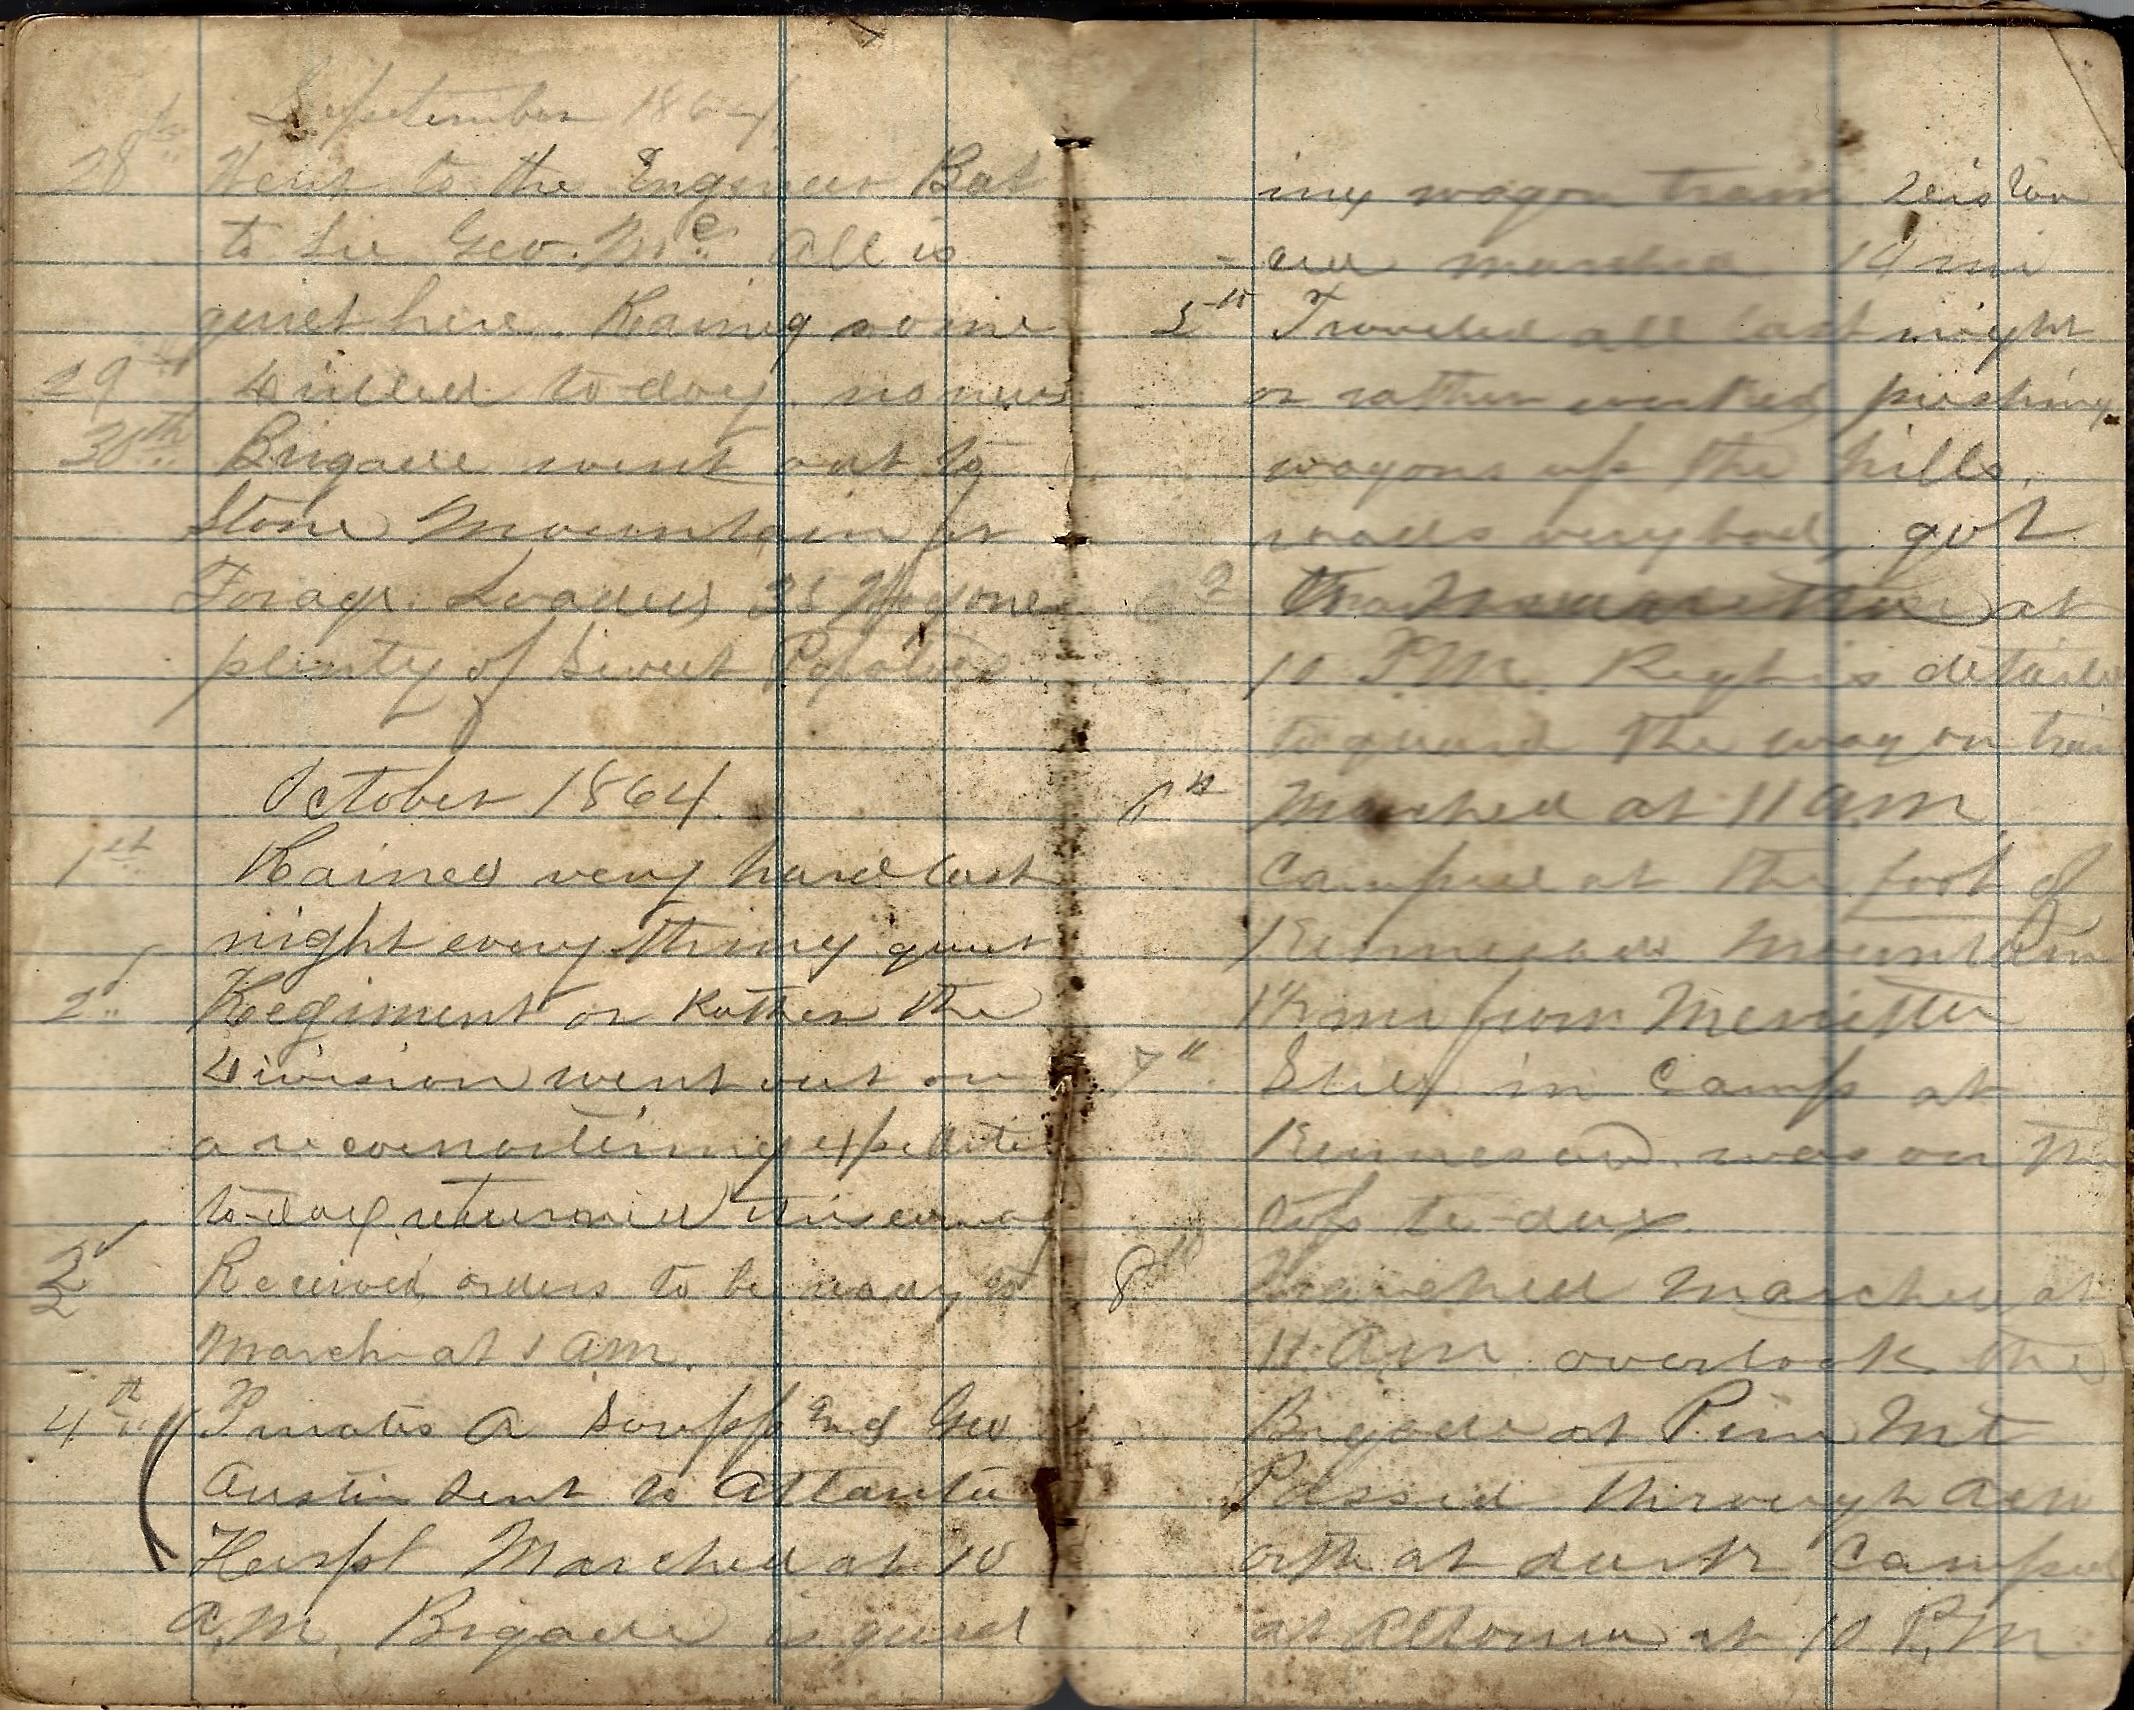 September 1864
28th Went to the Engineer Bat
to see Geo. Mc. All is
quiet here. Raining some
29th Drilled to-day. no news
30th Brigade went out to
Stone Mountain for
Forage. Loaded 35 Wagones
plenty of Sweet Potatoes
October 1864.
1st Rained very hard last
night every thing quiet
2" Regiment or Rather the
Division went out on
a reconoitering expedite
to-day returned this evening
3 Received orders to be ready to
march at 1 AM.
4th Privates A Soupp and Geo
Austin sent to Atlanta
Hospl Marched at 10
A.M. Brigade is guard
ing wagon train
and marched 14 mi
5th Traveled all last night
or rather worked pushing
wagons up the hills.
roads very bad, got
at
10 P.M. Regt is detailed
to guard the wagon train
6th Marched at 11 A.M.
Camped at the foot of
Kennesaw Mountain
1½ mi from Merietta
7" Still in Camp at
Kennesaw. was on the
top to-day.
8th Marched at
11 A.M. overtook the
Brigade at Pine Mt
Passed through Acw
orth at dark Camped
at Altoona at 10 P.M.